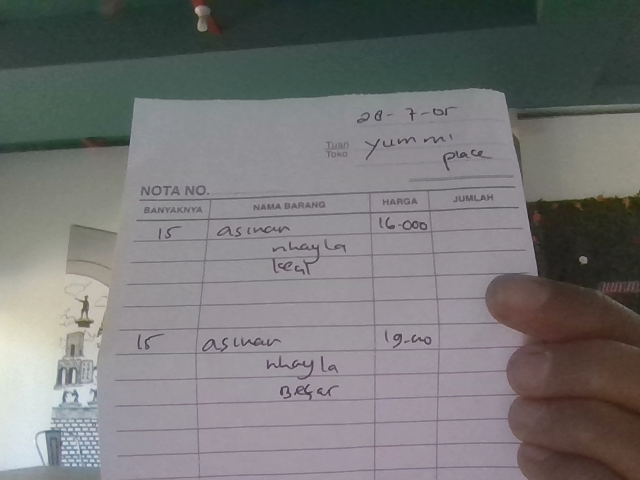 28-7-05
Tuan
Toko
yummi
place
NOTA NO.
BANYAKNYA NAMA BARANG HARGA JUMLAH
15 asinan 16.000
nhayla
kecil
15 asinan 19.000
nhayla
Besar